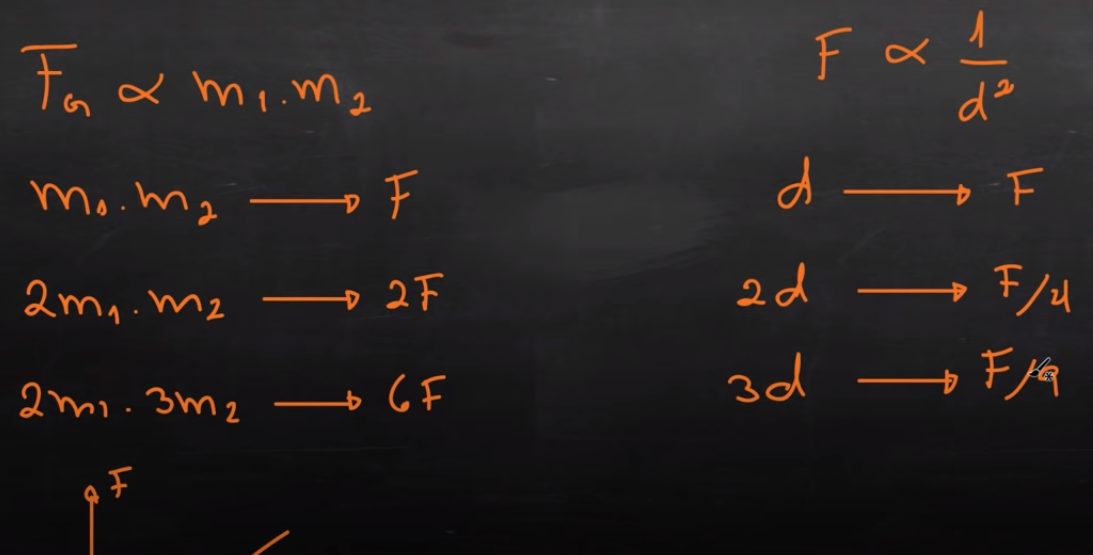 F_G ∝ m₁.m₂
m₁.m₂ ⟶ F
2m₁.m₂ ⟶ 2F
2m₁.3m₂ ⟶ 6F
F
F ∝ 1/d²
d ⟶ F
2d ⟶ F/4
3d ⟶ F/9